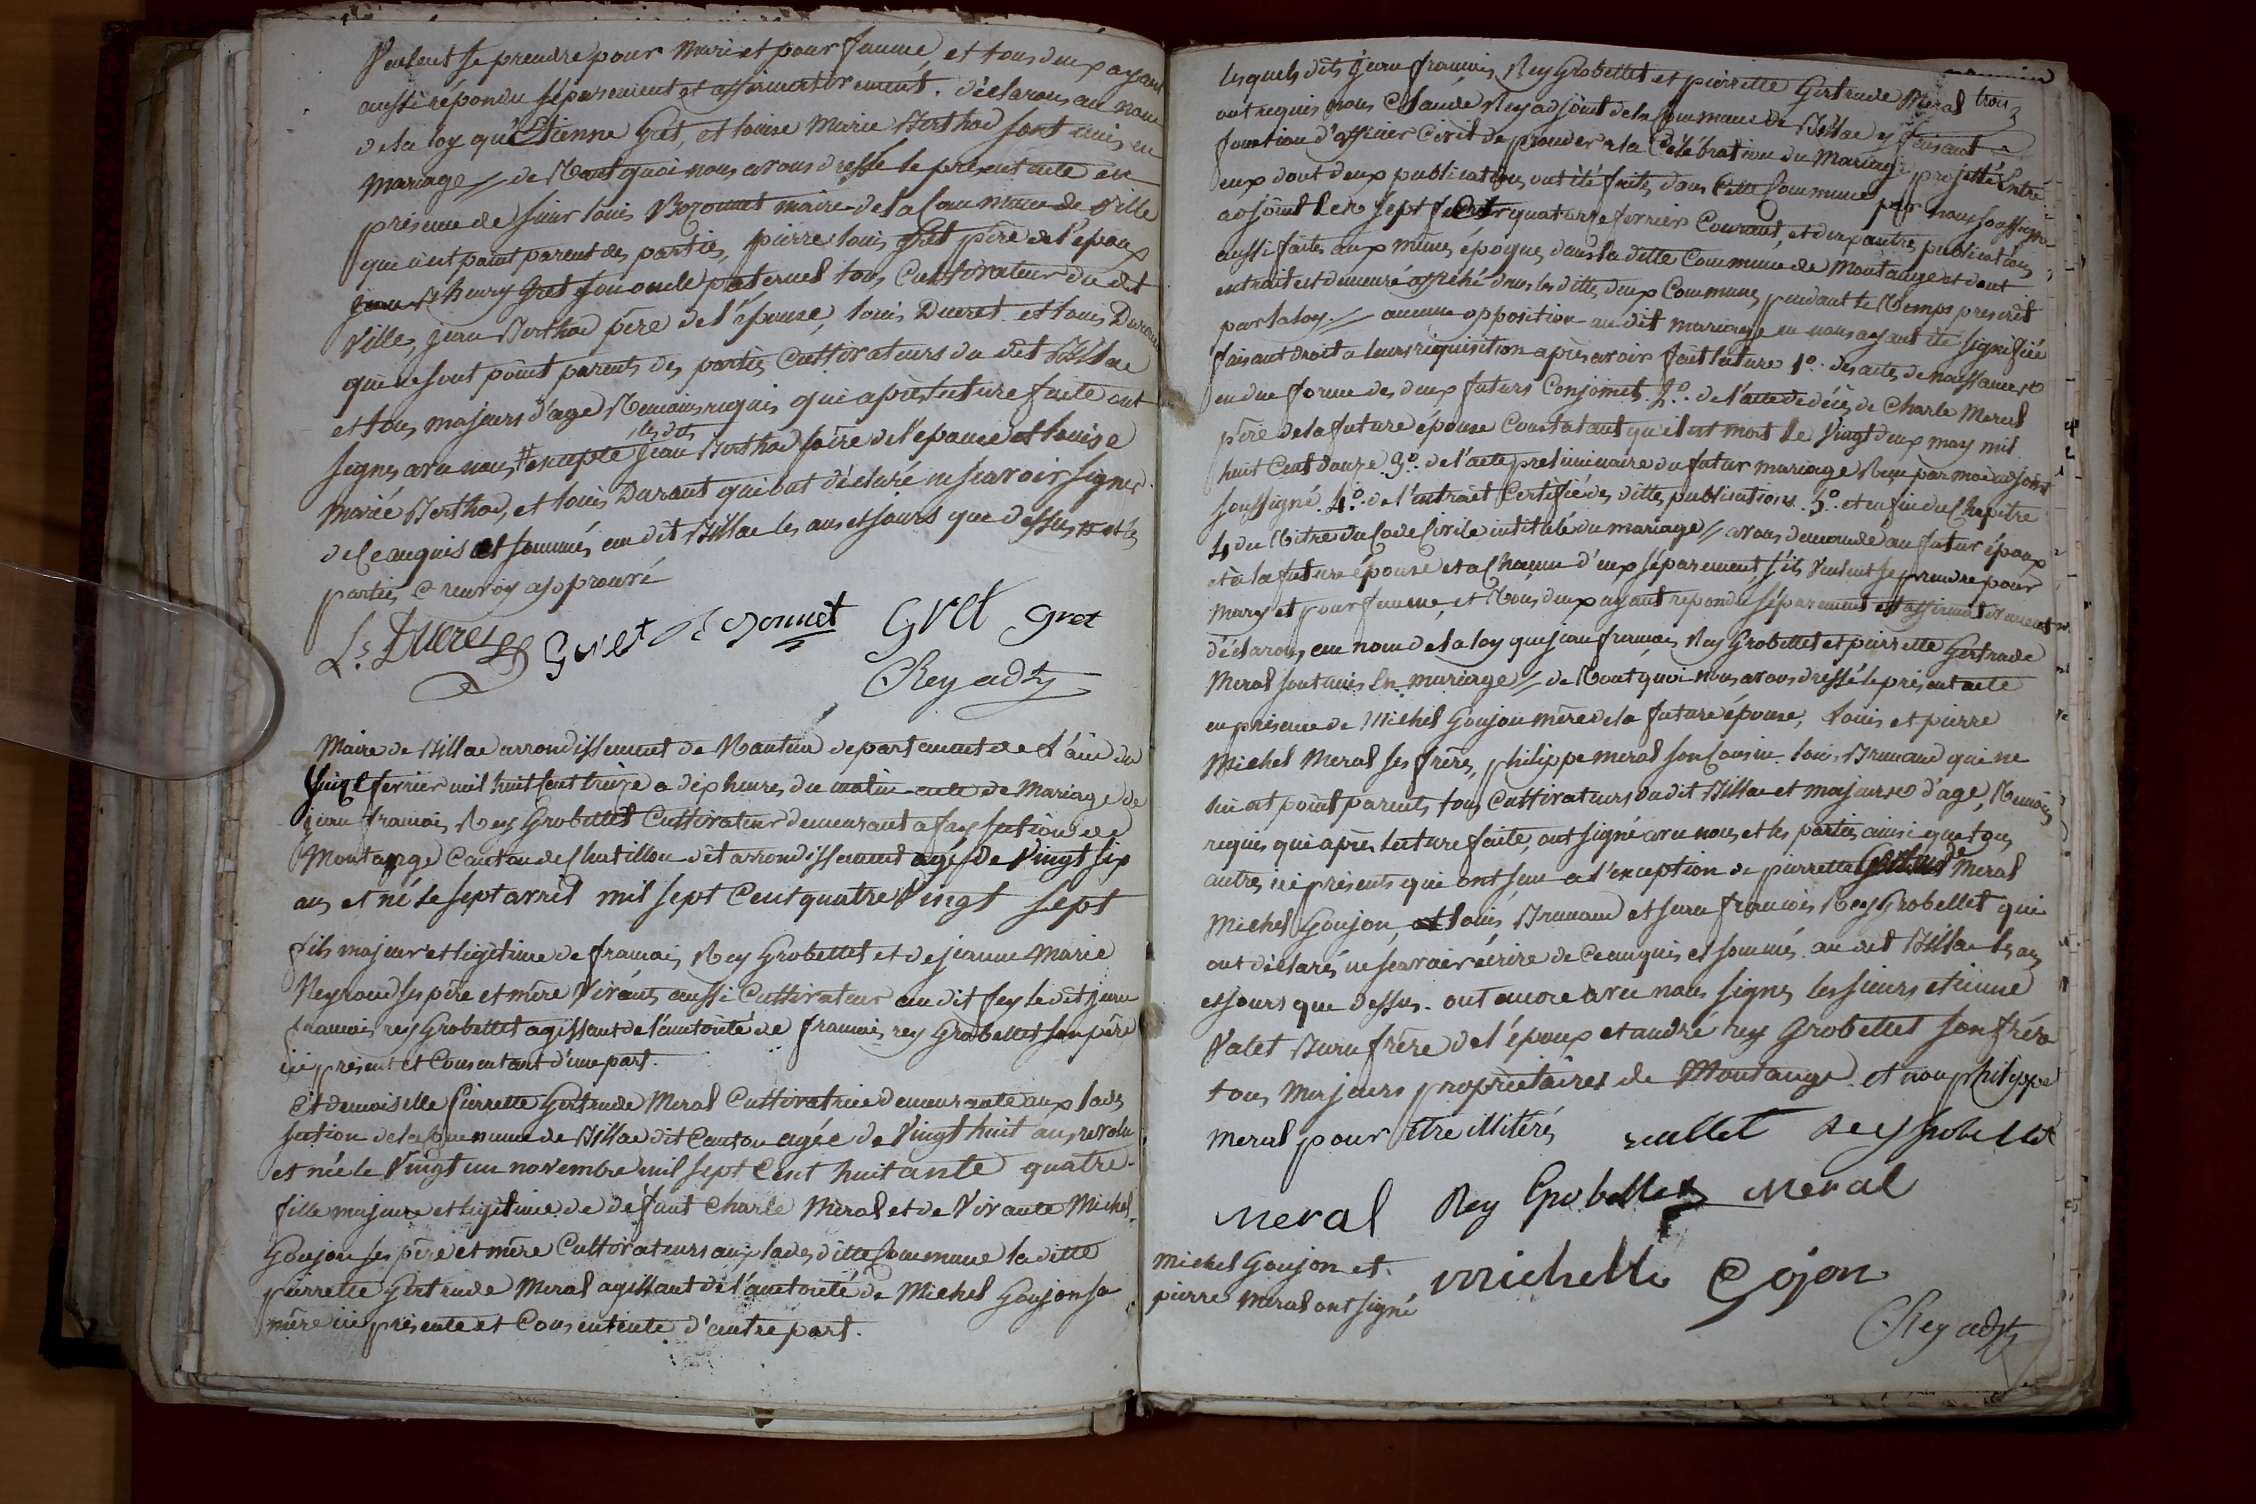 Veulent se prendre pour mari et pour femme, et tous deux ayant
aussi répondu séparement et affirmativement. déclarons au nom
de la loy qu'Etienne Gret, et louise Marie Berthod sont unis en
Mariage // de Tout quoi nous avons dressé le present acte en
présence de sieur louis Bozonnet maire de la Commune de Ville
qui n'est point parent des parties, pierre louis Gret père de l'epoux
henry Gret son oncle paternel tous Cultivateur du dit
Ville, jean Berthod père de l'épouse, louis Ducret et louis Durant
qui ne sont point parents des parties Cultivateurs du dit Billiac
et tous majeurs d'age Temoins requis qui après lecture faite ont
signes avec nous, # excepté les dits jean Berthod père de l'epouse et louise
Mariée Berthod, et louis Durant qui ont déclaré ne scavoir signer
de ce enquis et sommés au dit Billiac les ans et jours que dessus # et les
parties C renvoy approuvé
Ls. Ducret Gret Bozonnet Gret gret
C Rey adjt
Maire de Billiac arrondissement de Nantua departement de l'ain du
Vingt fevrier mil huit cent treize a dix heures du matin acte de Mariage de
jean francois Rey Grobellet Cultivateur demeurant a fay section de
Montange Canton de Chatillon dit arrondissement agé de Vingt six
ans et né le sept avril mil sept Cent quatre Vingt sept
fils majeur et legitime de francois Rey Grobellet et de jeanne Marie
Neyroud ses père et mère Vivants aussi Cultivateur au dit fey le dit jean
francois rey Grobellet agissant de l'autorité de francois rey Grobellet son père
ici présent et Consentant d'une part.
Et demoiselle Pierrette Gertrude Meral Cultivatrice demeurante aux lades
section de la Commune de Billiac dit Canton agée de Vingt huit ans revolu
et née le Vingt un novembre mil sept Cent huitante quatre
fille majeure et legitime de défunt Charle Meral et de Vivante Michel
Goujon ses père et mère Cultivateurs aux lades ditte Commune la ditte
pierrette Gertrude Meral agissant de l'autorité de Michel Goujon sa
mère ici présente et Consentente d'autre part.
trois
lesquels dits jean francois Rey Grobellet et pierrette Gertrude Meral
ont requis nous Claude Rey adjoint de la Commune de Billiac y faisant
fonction d'officier Civil de proceder a la Célébration du Mariage projetté Entre
eux dont deux publications ont été faites dans Cette Commune par nous soussigné
adjoint les sept et quatorze fevrier Courant, et deux autres publications
aussi faites aux mêmes époques dans la ditte Commune de Montange et dont
extrait est demeuré affiché dans les dittes deux Communes pendant le Temps prescrit
par la loy. // aucune opposition au dit mariage ne nous ayant été signifiée
faisant droit a leurs requisition après avoir fait lecture 1º. des actes de naissance
en due forme des deux futurs Conjoints. 2º. de l'acte de décès de Charle Meral
père de la future épouse Constatant qu'il est mort le Vingt deux may mil
huit Cent douze 3º. de l'acte preliminaire du futur mariage Reçu par moi adjoint
soussigné. 4º. de l'extrait Certifié des dittes publications. 5º. et enfin du Chapitre
4 du Titre du Code Civile intitulé du mariage // avons demandé au futur époux
et à la future épouse et a Chacun d'eux séparement s'ils Veulent se prendre pour
Mary et pour femme, et Tous deux ayant repondu séparement et affirmativement
déclarons au nom de la loy que jean francois Rey Grobellet et pierrette Gertrude
Meral sont unis En mariage // de Tout quoi nous avons dressé le présent acte
en présence de Michel Goujon mère de la future épouse, louis et pierre
Michel Meral ses frères, philippe meral son Cousin. louis Brunand qui ne
lui est point parents, tous Cultivateurs du dit Billiac et majeurs d'age, Temoins
requis qui après lecture faite, ont signé avec nous et les parties ainsi que tous
autres ici présents qui ont sçu a l'exception de pierrette Gertrude Meral
Michel Goujon, et louis Brunand et jean francois Rey Grobellet qui
ont déclarés ne scavoir écrire de ce enquis et sommés au dit Billiac les ans
et jours que dessus. ont encore avec nous signes les sieurs etienne
Valet Beau frère de l'époux et andré rey Grobellet son frère
tous Majeurs propriétaires de Montange. et non philippe
Meral pour être illitérés vallet Rey grobellet
Meral Rey Grobellet Meral
Michel Goujon et
pierre Meral ont signé michelle Gojon
C Rey adjt